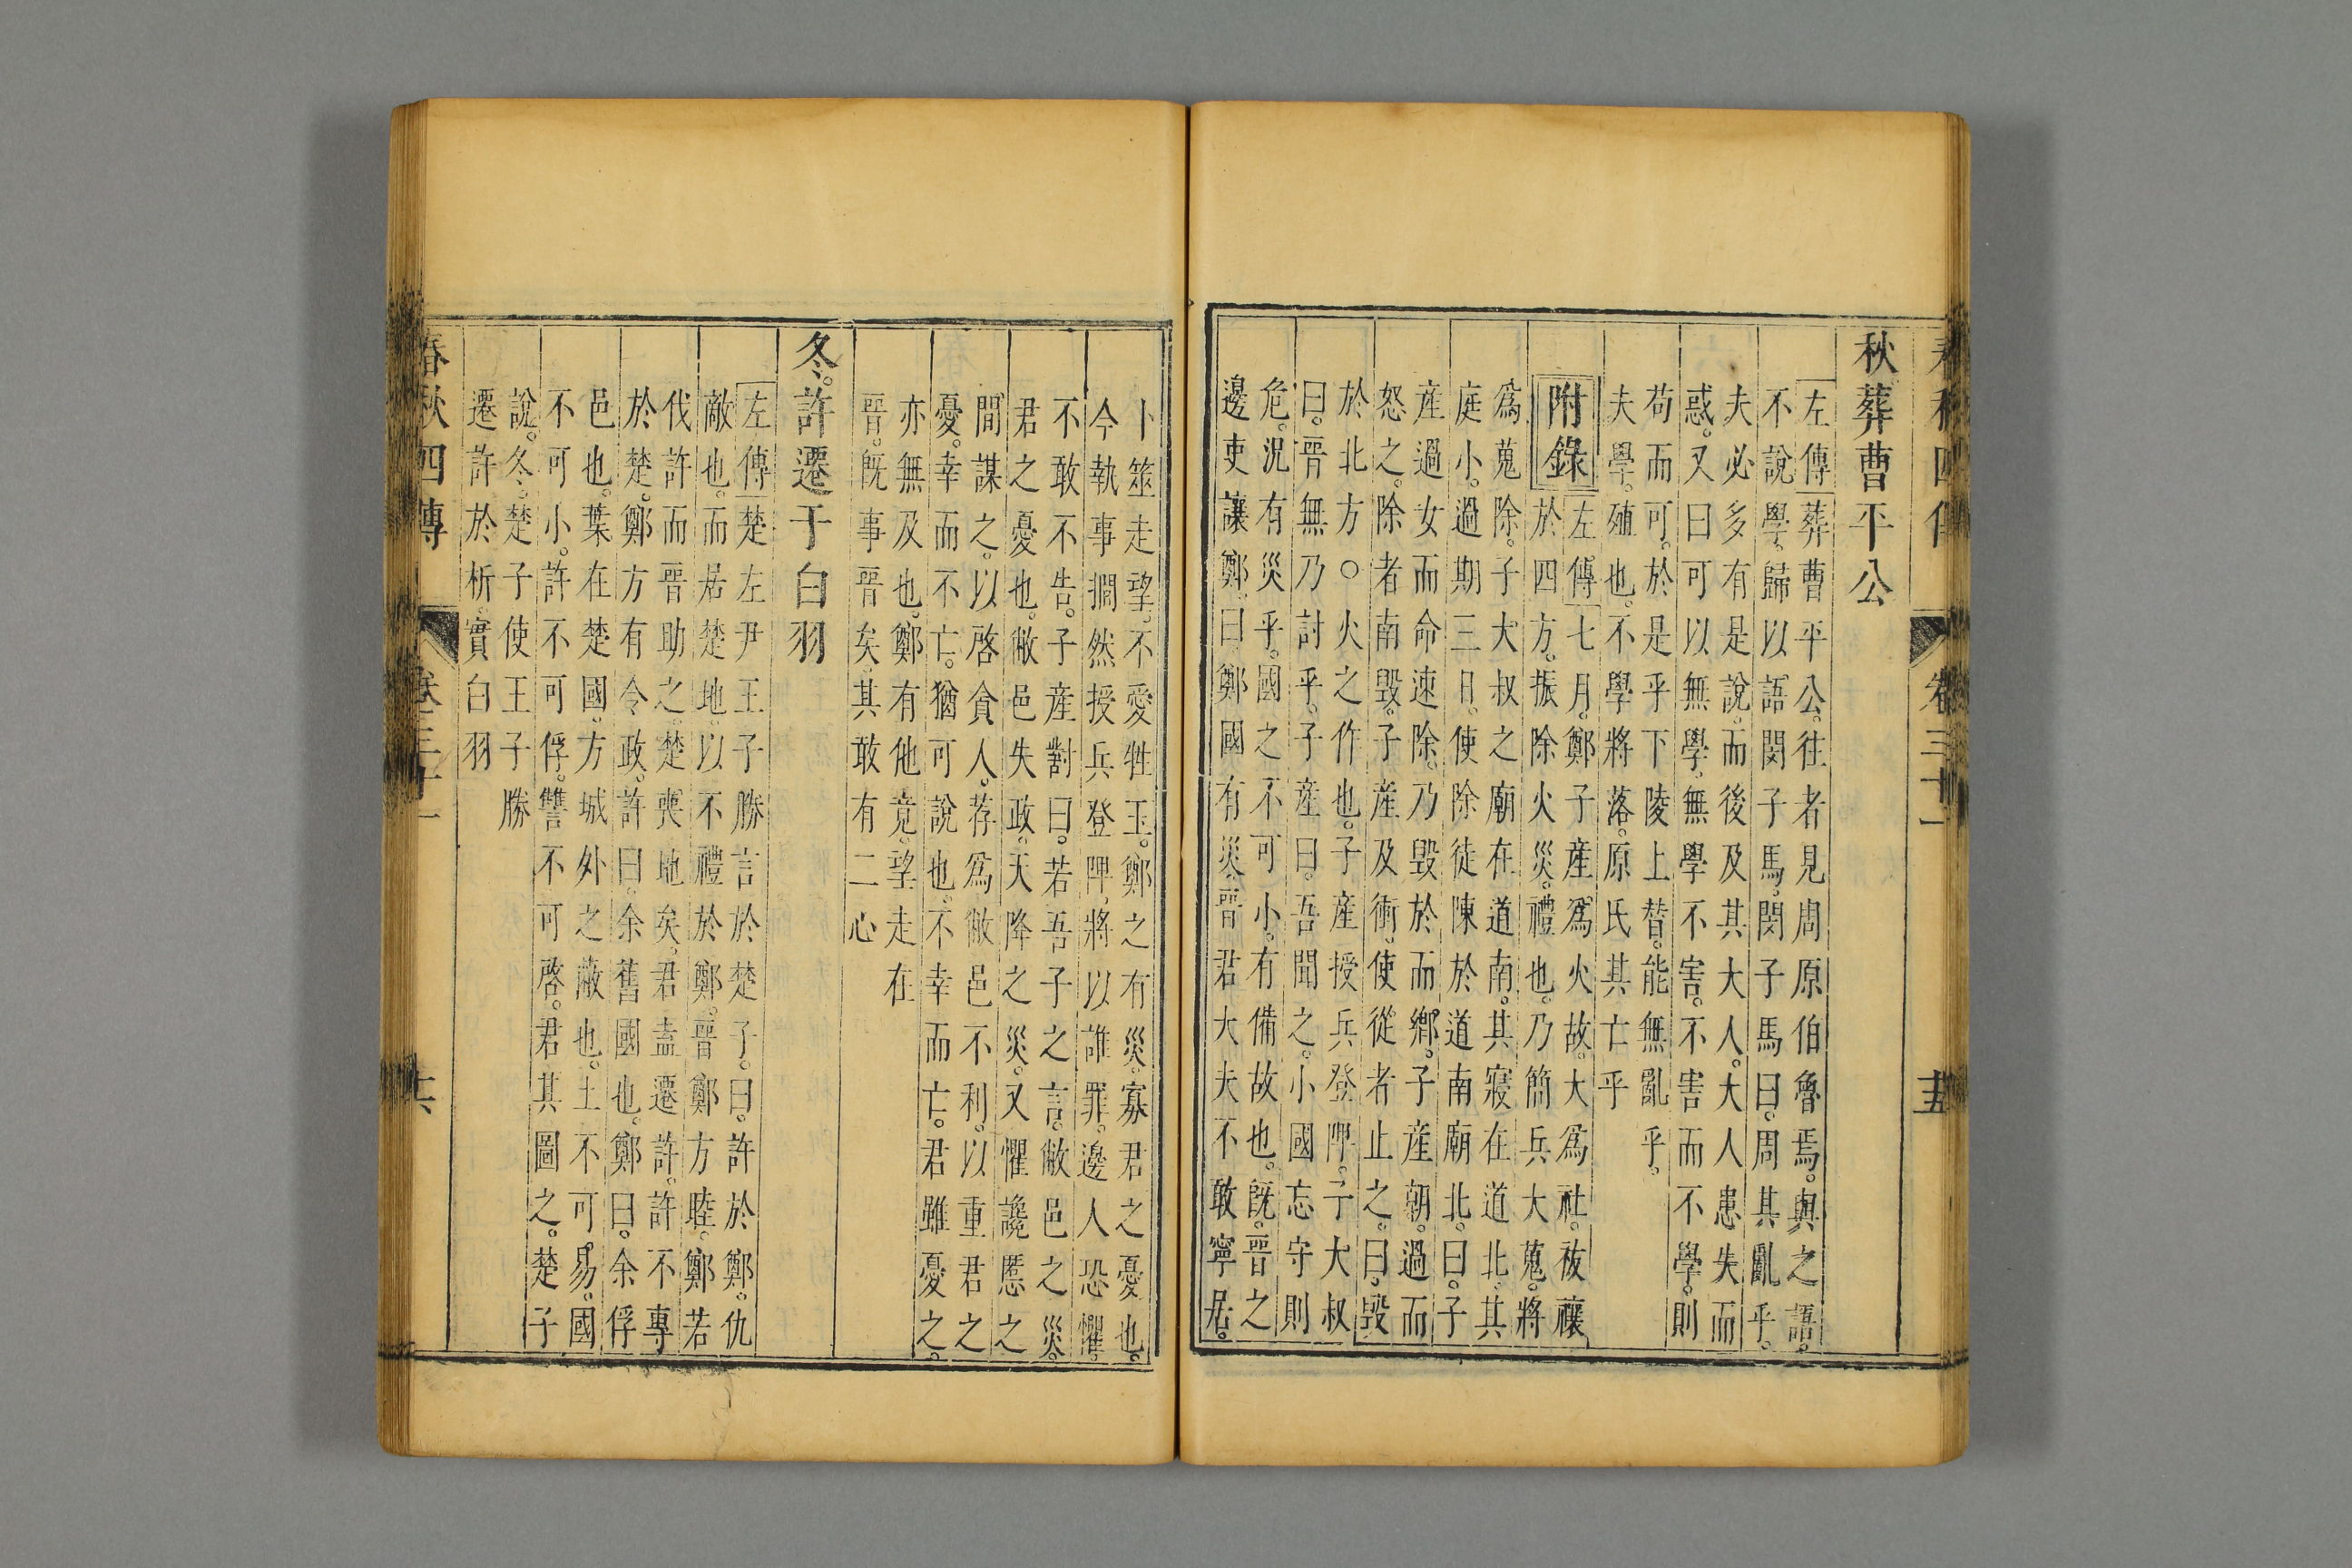 春秋四傳
卷三十一
十五
秋葬曹平公
左傳葬曹平公。往者見周原伯魯焉。與之語。
不說學。歸以語閔子馬。閔子馬曰。周其亂乎。
夫必多有是說。而後及其大人。大人患失而
惑。又曰可以無學。無學不害。不害而不學。則
苟而可。於是乎下陵上替。能無亂乎。
夫學。殖也。不學將落。原氏其亡乎
附錄
左傳七月。鄭子產爲火故。大爲社。祓禳
於四方。振除火災。禮也。乃簡兵大蒐。將
爲蒐除。子大叔之廟在道南。其寢在道北。其
庭小。過期三日。使除徒陳於道南廟北。曰。子
產過女而命速除。乃毀於而鄉。子產朝。過而
怒之。除者南毀。子產及衝。使從者止之。曰。毀
於北方〇火之作也。子產授兵登陴。子大叔
曰。晉無乃討乎。子產曰。吾聞之。小國忘守則
危。況有災乎。國之不可小。有備故也。旣。晉之
邊吏讓鄭。曰。鄭國有災。晉君大夫不敢寧居。
卜筮走望。不愛牲玉。鄭之有災。寡君之憂也。
今執事撊然授兵登陴。將以誰罪。邊人恐懼。
不敢不告。子產對曰。若吾子之言。敝邑之災。
君之憂也。敝邑失政。天降之災。又懼讒慝之
間謀之。以啓貪人。荐爲敝邑不利。以重君之
憂。幸而不亡。猶可說也。不幸而亡。君雖憂之。
亦無及也。鄭有他竟。望走在
晉。旣事晉矣。其敢有二心
冬。許遷于白羽
左傳楚左尹王子勝言於楚子。曰。許於鄭。仇
敵也。而居楚地。以不禮於鄭。晉鄭方睦。鄭若
伐許而晉助之。楚喪地矣。君盍遷許。許不專
於楚。鄭方有令政。許曰。余舊國也。鄭曰。余俘
邑也。葉在楚國。方城外之蔽也。土不可易。國
不可小。許不可俘。讐不可啓。君其圖之。楚子
說。冬。楚子使王子勝
遷許於析。實白羽
春秋四傳
卷三十一
十六